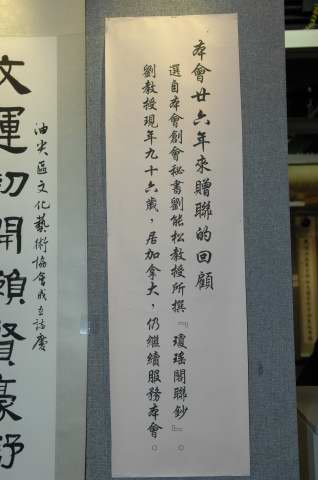 本會廿六年來贈聯的回顧
選自本會創會秘書劉能松教授所撰『瓊瑤閣聯鈔』。
劉教授現年九十六歲，居加拿大，仍繼續服務本會。
油尖區文化藝術協會成立誌慶
文運初開賴賢豪野